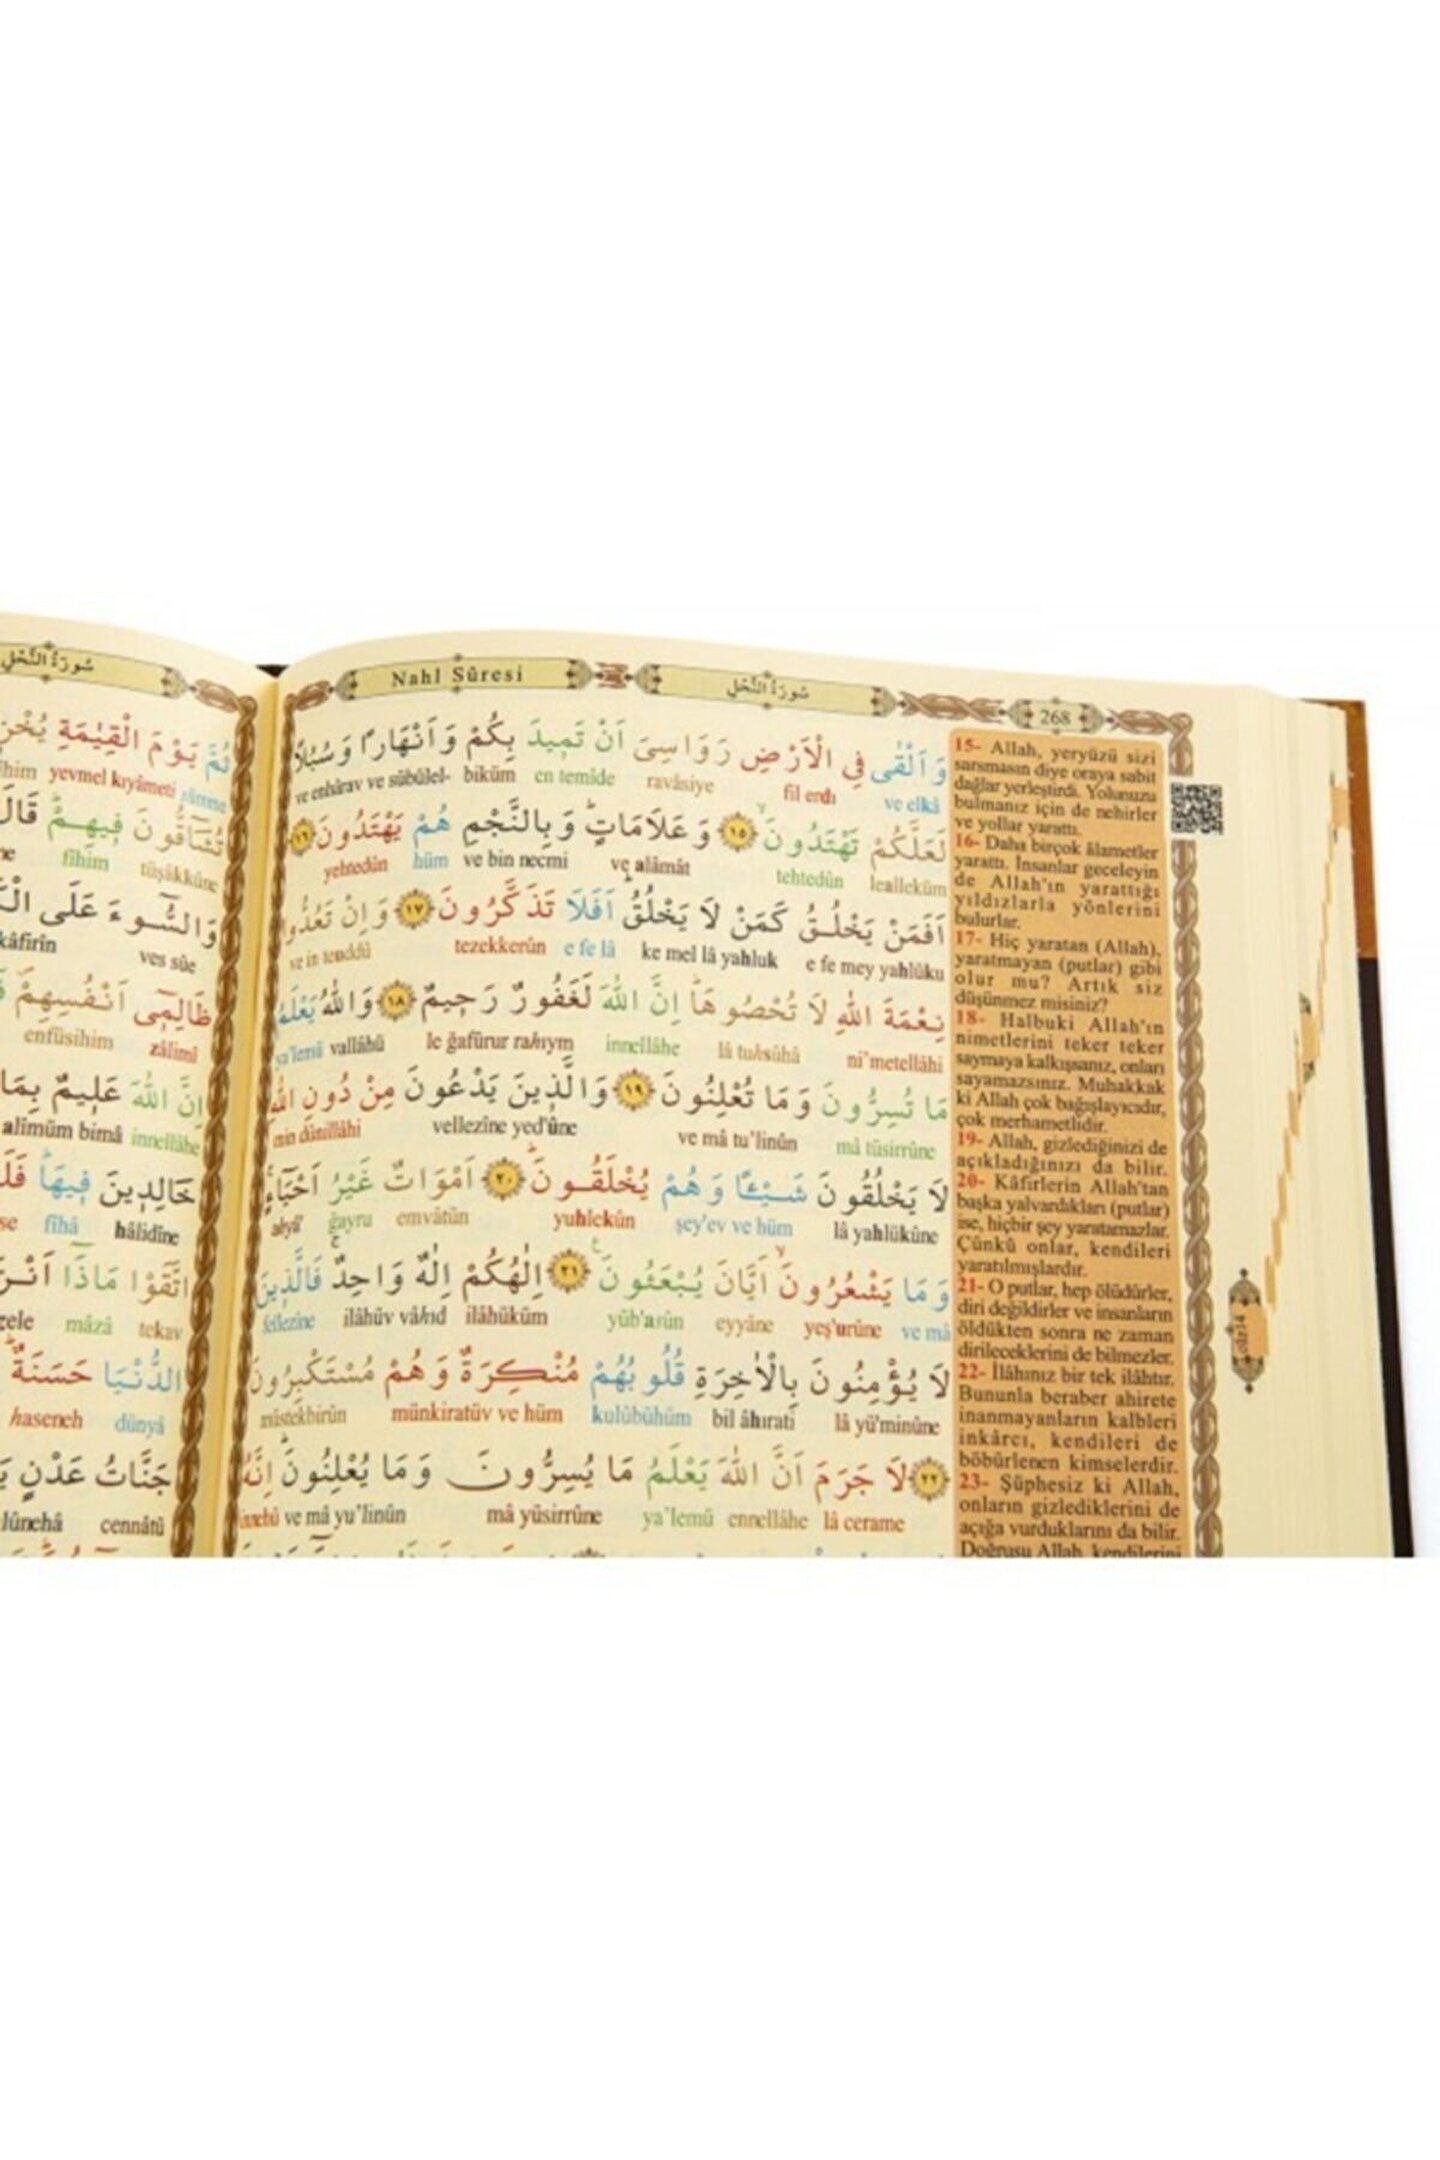 سُورَةُ النَّحْلِ
ثُمَّ يَوْمَ الْقِيٰمَةِ
yevmel kıyâmeti sümme
تُشَاقُّونَ فِيهِمْ قَالَ
fîhim tüşâkkûne
وَالسُّوءَ عَلَى
kâfirîn ves sûe
ظَالِمِى اَنْفُسِهِمْ
enfüsihim zâlimî
اِنَّ اللّٰهَ عَلِيمٌ بِمَا
alîmüm bimâ innellâhe
خَالِدِينَ فِيهَا
fîhâ hâlidîne
اتَّقَوْا مَاذَا
mâzâ tekav
الدُّنْيَا حَسَنَةٌ
haseneh dünyâ
جَنَّاتُ عَدْنٍ
cennâtü
Nahl Sûresi
سُورَةُ النَّحْلِ
268
وَاَلْقٰى فِي الْاَرْضِ رَوَاسِيَ اَنْ تَمِيدَ بِكُمْ وَاَنْهَارًا وَسُبُلًا
ve enhârav ve sübülel- biküm en temîde ravâsiye fil erdı ve elkâ
لَعَلَّكُمْ تَهْتَدُونَ ١٥ وَعَلَامَاتٍ وَبِالنَّجْمِ هُمْ يَهْتَدُونَ ١٦
yehtedûn hüm ve bin necmi ve alâmât tehtedûn lealleküm
اَفَمَنْ يَخْلُقُ كَمَنْ لَا يَخْلُقُ اَفَلَا تَذَكَّرُونَ ١٧ وَاِنْ تَعُدُّوا
ve in teuddû tezekkerûn e fe lâ ke mel lâ yahluk e fe mey yahlüku
نِعْمَةَ اللّٰهِ لَا تُحْصُوهَا اِنَّ اللّٰهَ لَغَفُورٌ رَحِيمٌ ١٨ وَاللّٰهُ يَعْلَمُ
ya'lemü vallâhü le ğafûrur rahıym innellâhe lâ tuhsûhâ ni'metellâhi
مَا تُسِرُّونَ وَمَا تُعْلِنُونَ ١٩ وَالَّذِينَ يَدْعُونَ مِنْ دُونِ اللّٰهِ
min dûnillâhi vellezîne yed'ûne ve mâ tu'linûn mâ tüsirrûne
لَا يَخْلُقُونَ شَيْـًٔا وَهُمْ يُخْلَقُونَ ٢٠ اَمْوَاتٌ غَيْرُ اَحْيَاءٍ
ahyâ' ğayru emvâtün yuhlekûn şey'ev ve hüm lâ yahlükûne
وَمَا يَشْعُرُونَ اَيَّانَ يُبْعَثُونَ ٢١ اِلٰهُكُمْ اِلٰهٌ وَاحِدٌ فَالَّذِينَ
fellezîne ilâhüv vâhıd ilâhüküm yüb'asûn eyyâne yeş'urûne ve mâ
لَا يُؤْمِنُونَ بِالْاٰخِرَةِ قُلُوبُهُمْ مُنْكِرَةٌ وَهُمْ مُسْتَكْبِرُونَ
müstekbirûn münkiratüv ve hüm kulûbühüm bil âhırati lâ yü'minûne
٢٢ لَا جَرَمَ اَنَّ اللّٰهَ يَعْلَمُ مَا يُسِرُّونَ وَمَا يُعْلِنُونَ اِنَّهُ
innehû ve mâ yu'linûn mâ yüsirrûne ya'lemü ennellâhe lâ cerame
15- Allah, yeryüzü sizi
sarsmasın diye oraya sabit
dağlar yerleştirdi. Yolunuzu
bulmanız için de nehirler
ve yollar yarattı.
16- Daha birçok âlametler
yarattı. İnsanlar geceleyin
de Allah'ın yarattığı
yıldızlarla yönlerini
bulurlar.
17- Hiç yaratan (Allah),
yaratmayan (putlar) gibi
olur mu? Artık siz
düşünmez misiniz?
18- Halbuki Allah'ın
nimetlerini teker teker
saymaya kalkışsanız, onları
sayamazsınız. Muhakkak
ki Allah çok bağışlayıcıdır,
çok merhametlidir.
19- Allah, gizlediğinizi de
açıkladığınızı da bilir.
20- Kâfirlerin Allah'tan
başka yalvardıkları (putlar)
ise, hiçbir şey yaratamazlar.
Çünkü onlar, kendileri
yaratılmışlardır.
21- O putlar, hep ölüdürler,
diri değildirler ve insanların
öldükten sonra ne zaman
dirileceklerini de bilmezler.
22- İlâhınız bir tek ilâhtır.
Bununla beraber ahirete
inanmayanların kalbleri
inkârcı, kendileri de
böbürlenen kimselerdir.
23- Şüphesiz ki Allah,
onların gizlediklerini de
açığa vurduklarını da bilir.
Doğrusu Allah, kendilerini
cüz14